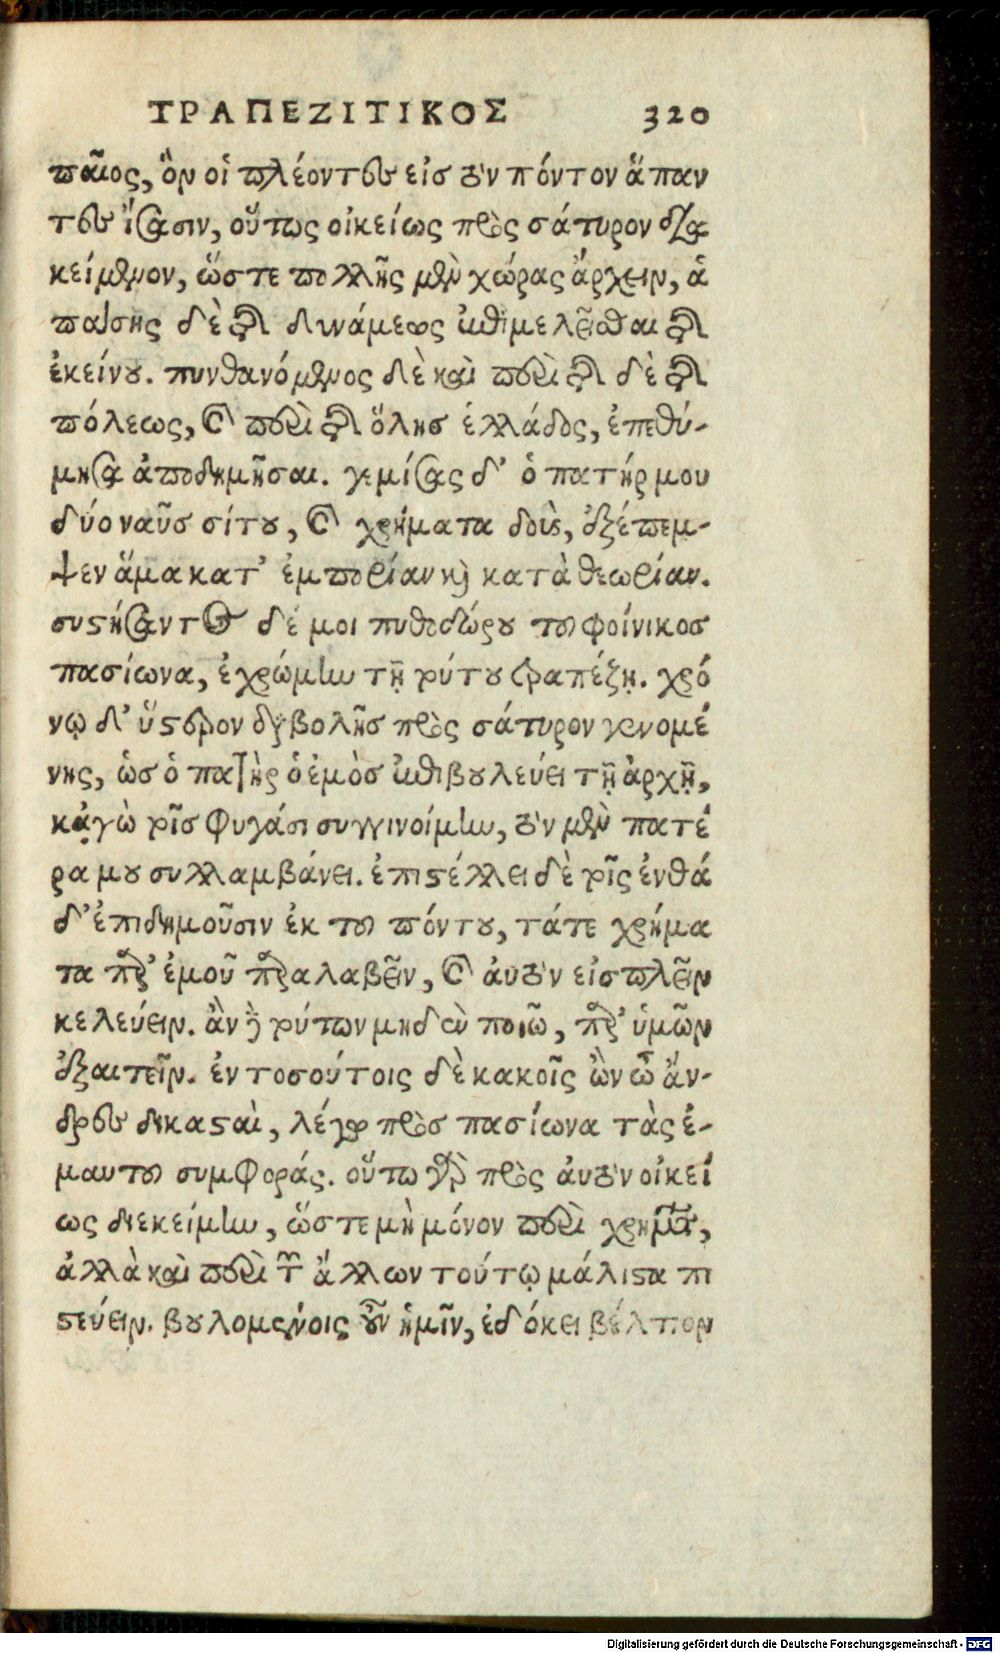 ΤΡΑΠΕΖΙΤΙΚΟΣ 320
παῖος, ὃν οἱ πλέοντες εἰς τὸν πόντον ἅπαν
τες ἴσασιν, οὕτως οἰκείως πρὸς σάτυρον δια
κείμενον, ὥστε πολλῆς μὲν χώρας ἄρχειν, ἁ
πάσης δὲ τῆς δυνάμεως ἐπιμελεῖσθαι τῆς
ἐκείνου. πυνθανόμενος δὲ καὶ περὶ τῆς δὲ τῆς
πόλεως, καὶ περὶ τῆς ὅλης ἑλλάδος, ἐπεθύ-
μησα ἀποδημῆσαι. γεμίσας δ' ὁ πατήρ μου
δύο ναῦς σίτου, καὶ χρήματα δοὺς, ἐξέπεμ-
ψεν ἅμα κατ' ἐμπορίαν καὶ κατὰ θεωρίαν.
συστήσαντος δέ μοι πυθοδώρου τοῦ φοίνικος
πασίωνα, ἐχρώμην τῇ τούτου τραπέζῃ. χρό
νῳ δ' ὕστερον διαβολῆς πρὸς σάτυρον γενομέ
νης, ὡς ὁ πατὴρ ὁ ἐμὸς ἐπιβουλεύει τῇ ἀρχῇ,
κᾀγὼ τοῖς φυγάσι συγγινοίμην, τὸν μὲν πατέ
ρα μου συλλαμβάνει. ἐπιστέλλει δὲ τοῖς ἐνθά
δ' ἐπιδημοῦσιν ἐκ τοῦ πόντου, τά τε χρήμα
τα παρ' ἐμοῦ παραλαβεῖν, καὶ αὐτὸν εἰσπλεῖν
κελεύειν. ἂν δὲ τούτων μηδὲν ποιῶ, παρ' ὑμῶν
ἐξαιτεῖν. ἐν τοσούτοις δὲ κακοῖς ὢν ὦ ἄν-
δρες δικασταὶ, λέγω πρὸς πασίωνα τὰς ἐ-
μαυτοῦ συμφοράς. οὕτω γὰρ πρὸς αὐτὸν οἰκεί
ως διεκείμην, ὥστε μὴ μόνον περὶ χρημάτων,
ἀλλὰ καὶ περὶ τῶν ἄλλων τούτῳ μάλιστα πι
στεύειν. βουλομένοις οὖν ἡμῖν, ἐδόκει βέλτιον
Digitalisierung gefördert durch die Deutsche Forschungsgemeinschaft - DFG